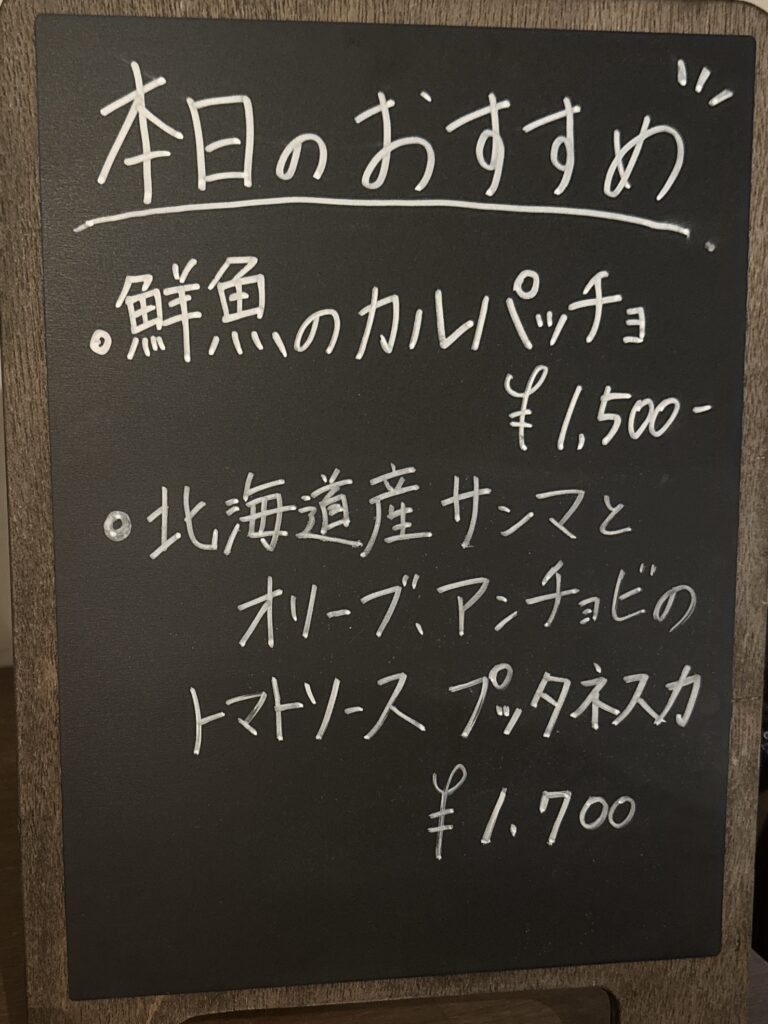 本日のおすすめ
・鮮魚のカルパッチョ
¥1,500-
・北海道産サンマと
オリーブ、アンチョビの
トマトソース プッタネスカ
¥1.700